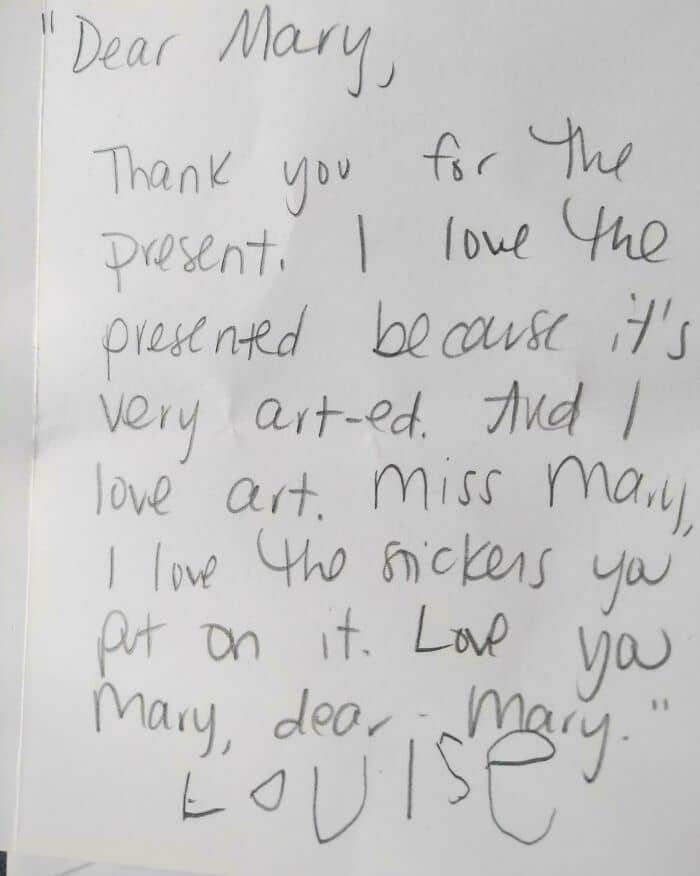 "Dear Mary,
Thank you for the
present. I love the
presented because it's
very art-ed. And I
love art. Miss Mary,
I love the stickers you
put on it. Love you
Mary, dear - Mary."
LOUISe